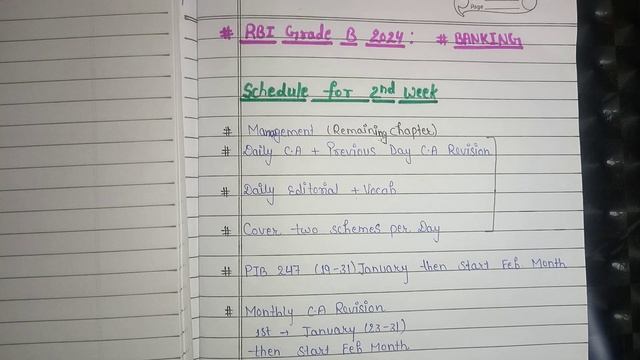 Page
# RBI Grade B 2024: # BANKING
Schedule for 2nd Week
# Management (Remaining Chapter)
# Daily C.A + Previous Day C.A Revision
# Daily Editorial + Vocab
# Cover two schemes per Day
# PIB 247 (19-31) January then start Feb Month
# Monthly C.A Revision
1st → January (23-31)
then start Feb Month